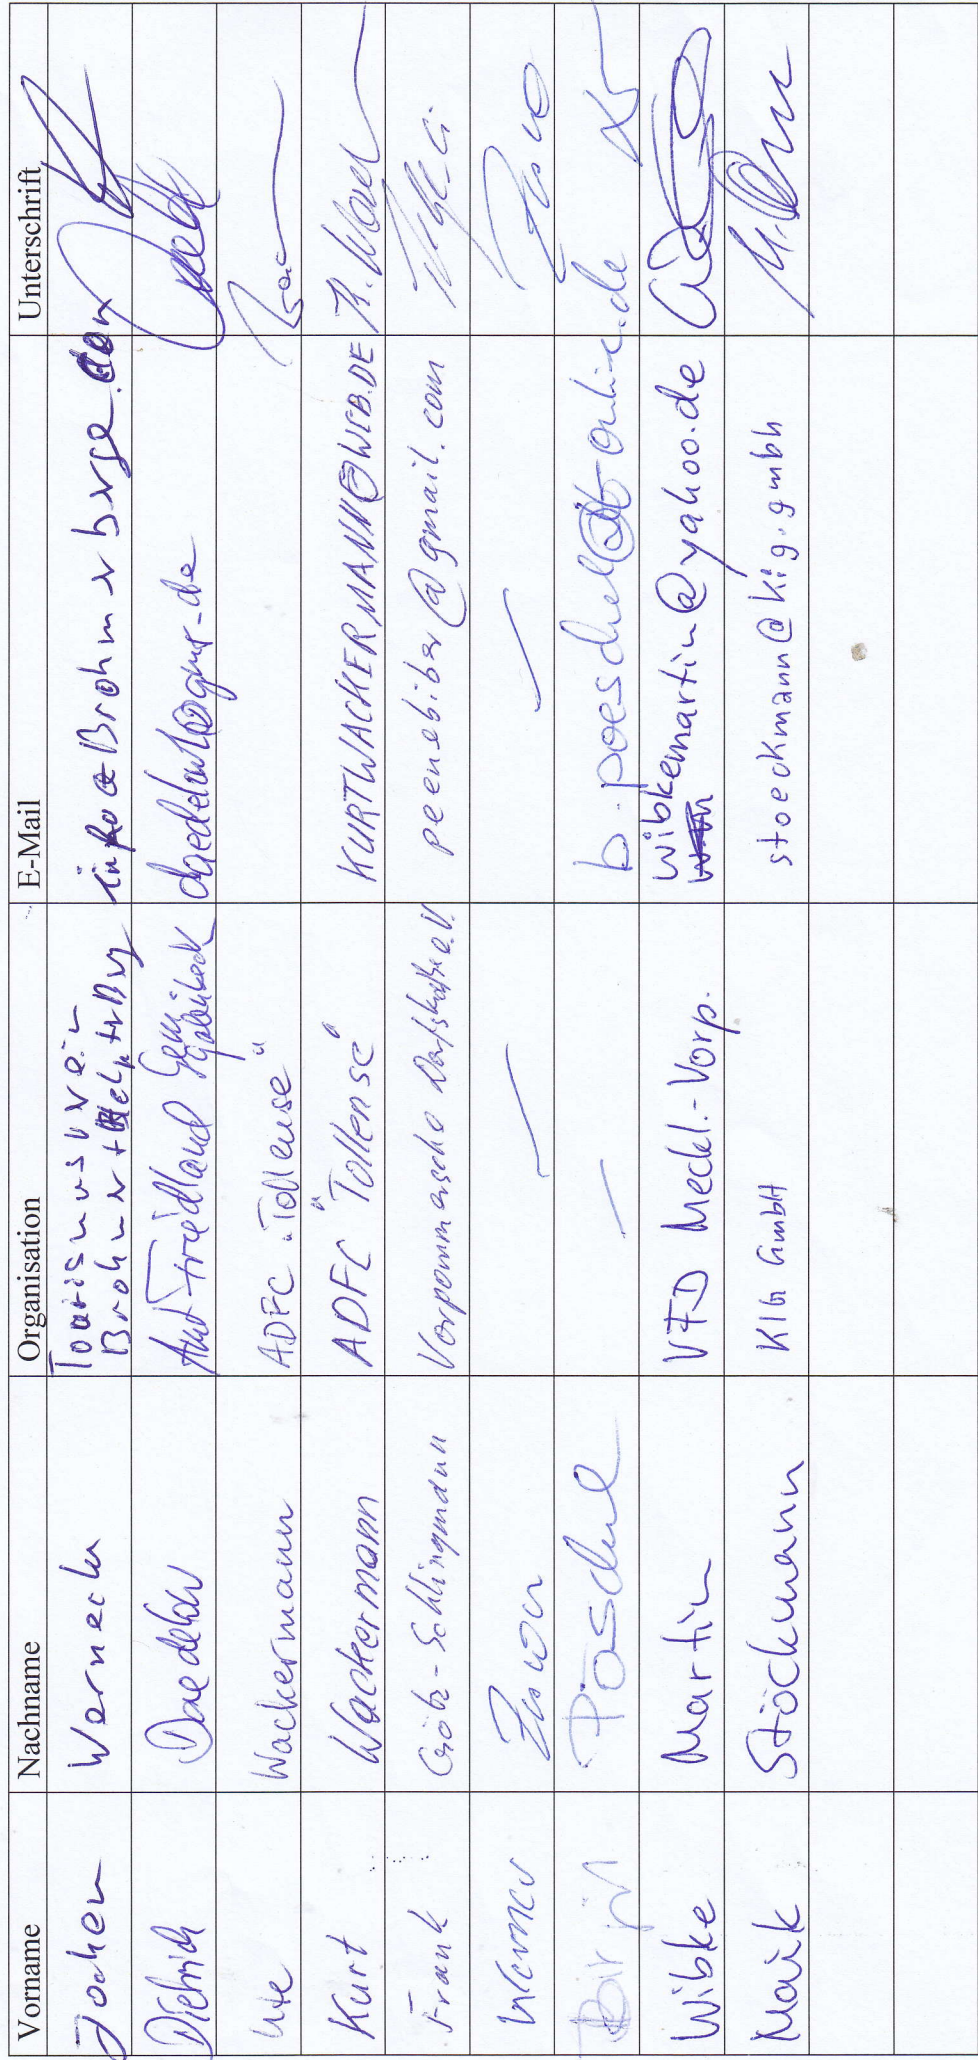 Vorname Nachname Organisation E-Mail Unterschrift
Jochen Wernecke Tourismusverein
Brohmer + Helpter Bg info@Brohmerberge.com
Dietrich Daedelow Amt Friedland Gem. Galenbeck
Ute Wackermann ADFC "Tollense"
Kurt Wackermann ADFC "Tollense" KURTWACKERMANN@WEB.DE K. Wackel
Frank Götz-Schlingmann Vorpommersche Dorfstraße e.V. peenebiber@gmail.com
Werner —
Birgit Pöschel — b.poeschel@t-online.de
Wibke Martin VFD Meckl.-Vorp. wibkemartin@yahoo.de
Maik Stöckmann KIG GmbH stoeckmann@kig.gmbh